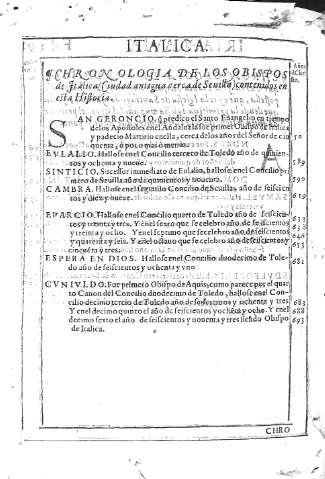 ITALICA.
CHRONOLOGIA DE LOS OBISPOS
de Italica (Ciudad antigua cerca de Sevilla) contenidos en
esta Historia.
Años de Christo.
SAN GERONCIO, q̃ predico el Santo Evangelio en tiempo
de los Apostoles en el Andaluzia fue primer Obispo de Italica
y padecio Martirio en ella, cerca de los años del Señor de cin
quenta, ò poco mas ò menos. 50
EVLALIO. Hallose en el Concilio tercero de Toledo año de quinien-
tos y ochenta y nueve. 589
SINTICIO. Sucessor inmediato de Eulalio, hallose en el Concilio pri
mero de Sevilla año de quinientos y noventa. 590
CAMBRA. Hallose en el segundo Concilio de Sevilla, año de seiscien-
tos y diez y nueve. 619
EPARCIO. Hallose en el Concilio quarto de Toledo año de seiscien-
tos y treinta y tres. Y en el sexto que se celebro año de seiscientos 633
y treinta y ocho. Y en el septimo que se celebro año de seiscientos 638
y quarenta y seis. Y en el octavo que se celebro año de seiscientos y 646
cinquenta y tres. 653
ESPERA EN DIOS. Hallose en el Concilio duodecimo de Tole-
do año de seiscientos y ochenta y uno 681
CVNIVLDO. Fue primero Obispo de Aquis, como parece por el quar
to Canon del Concilio duodecimo de Toledo, hallose en el Con-
cilio decimo tercio de Toledo año de seiscientos y ochenta y tres 683
Y en el decimo quinto el año de seiscientos y ochẽta y ocho. Y en el 688
decimo sexto el año de seiscientos y noventa y tres siendo Obispo 693
de Italica.
CHRO